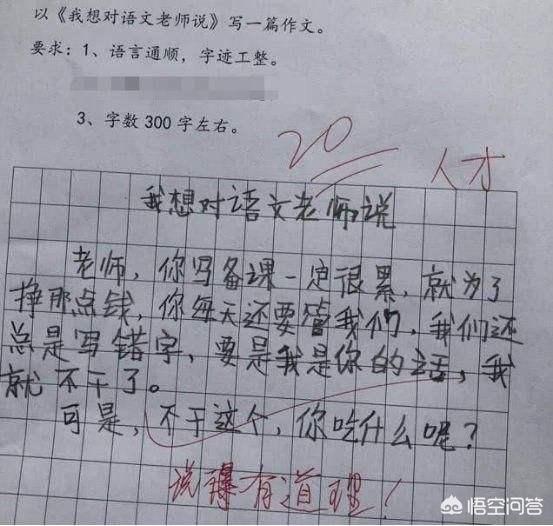 以《我想对语文老师说》写一篇作文。
要求：1、语言通顺，字迹工整。
3、字数 300 字左右。
20
人才
我想对语文老师说
老师，你写备课一定很累，就为了
挣那点钱，你每天还要管我们，我们还
总是写错字，要是我是你的话，我
就不干了。
可是，不干这个，你吃什么呢？
说得有道理！
悟空问答